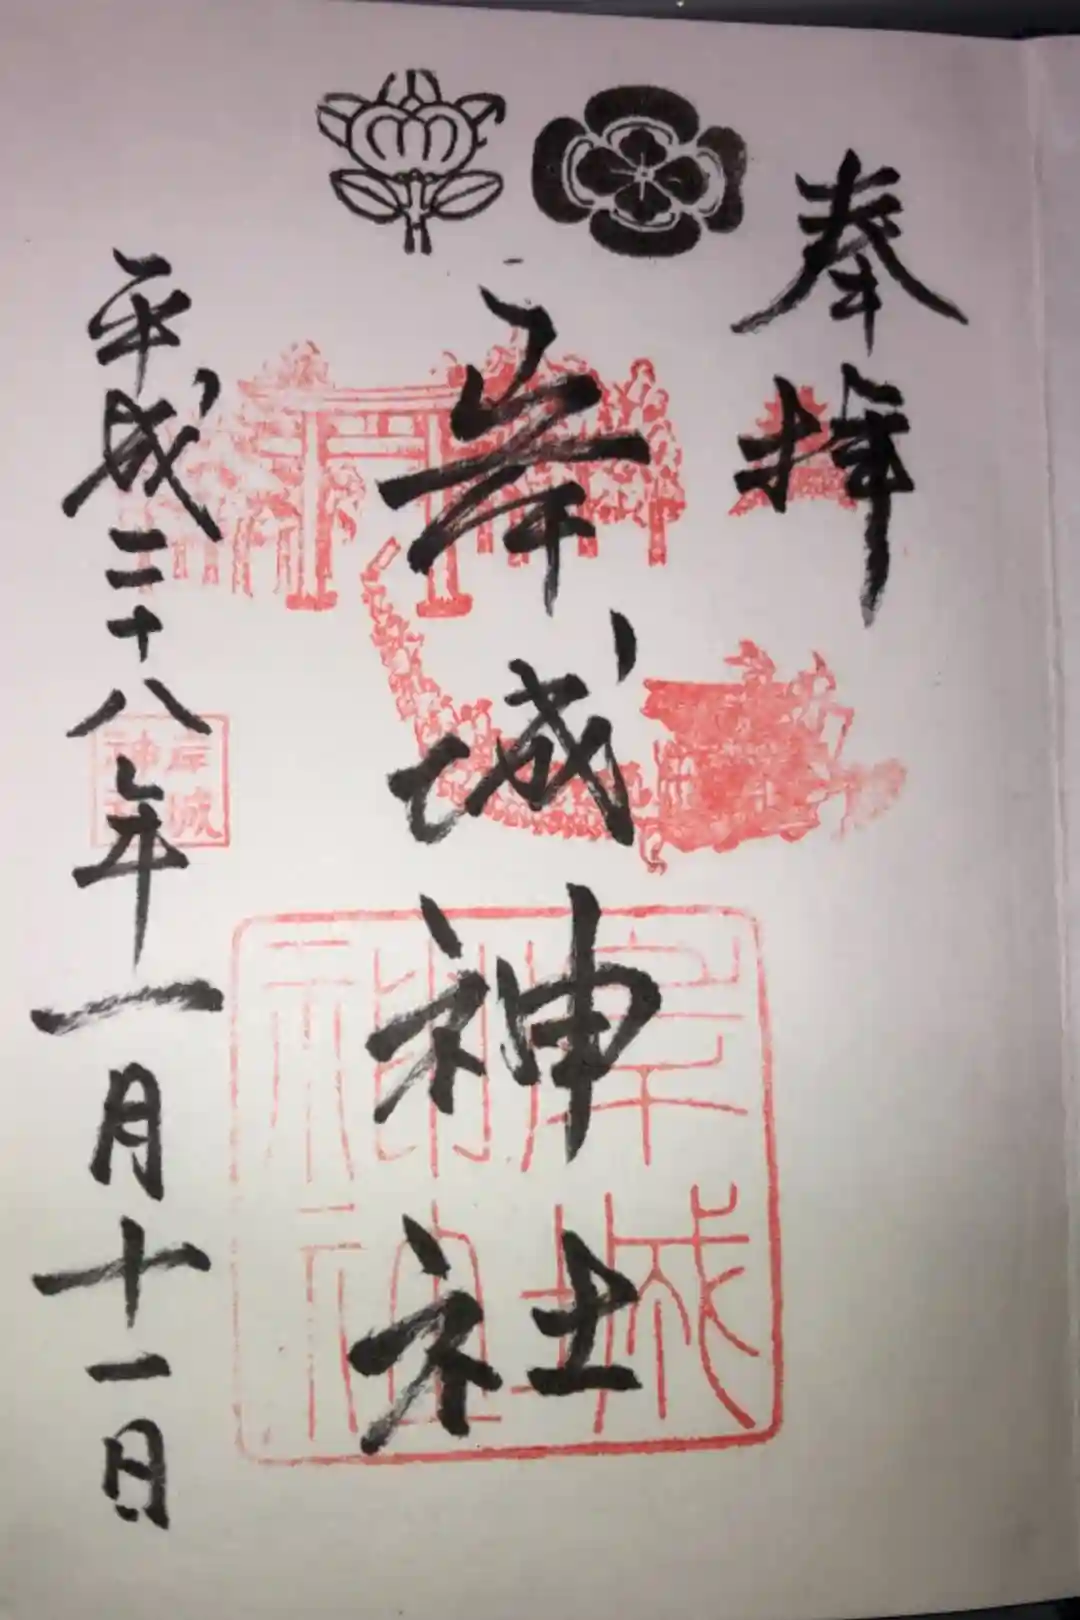 奉拝
岸城神社
平成二十八年一月十一日
岸城
神社
岸城
神社